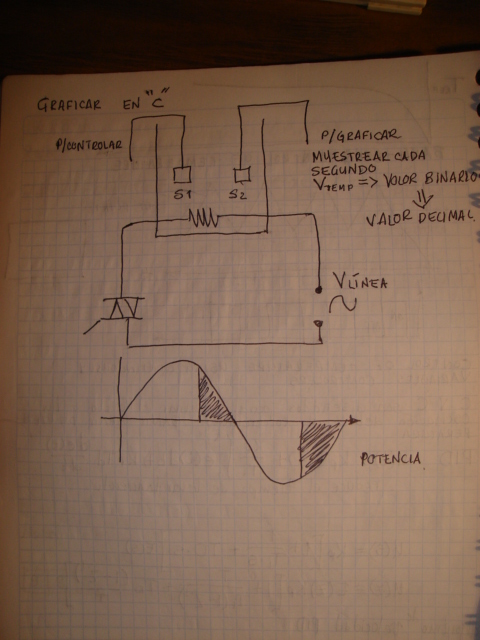 GRAFICAR EN "C"
P/CONTROLAR
P/GRAFICAR
MUESTREAR CADA
SEGUNDO
VTEMP => VOLOR BINARIO
VALOR DECIMAL
S1
S2
VLÍNEA
POTENCIA